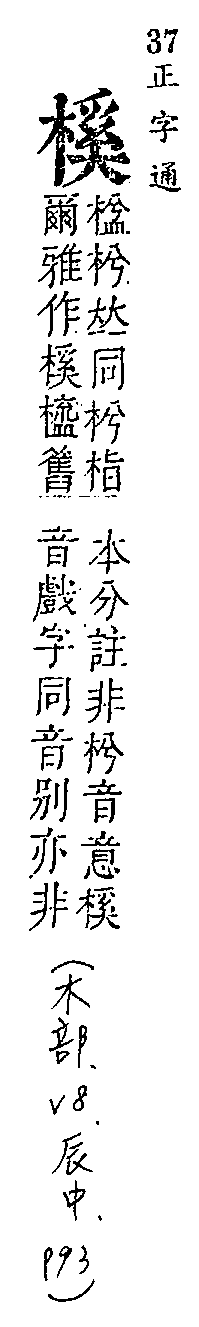 37正字通
榽
榲枍𠀤同枍栺
爾雅作榽橀舊
本分註非枍音意榽
音戲字同音別亦非
(木部、v8.辰中、p93)